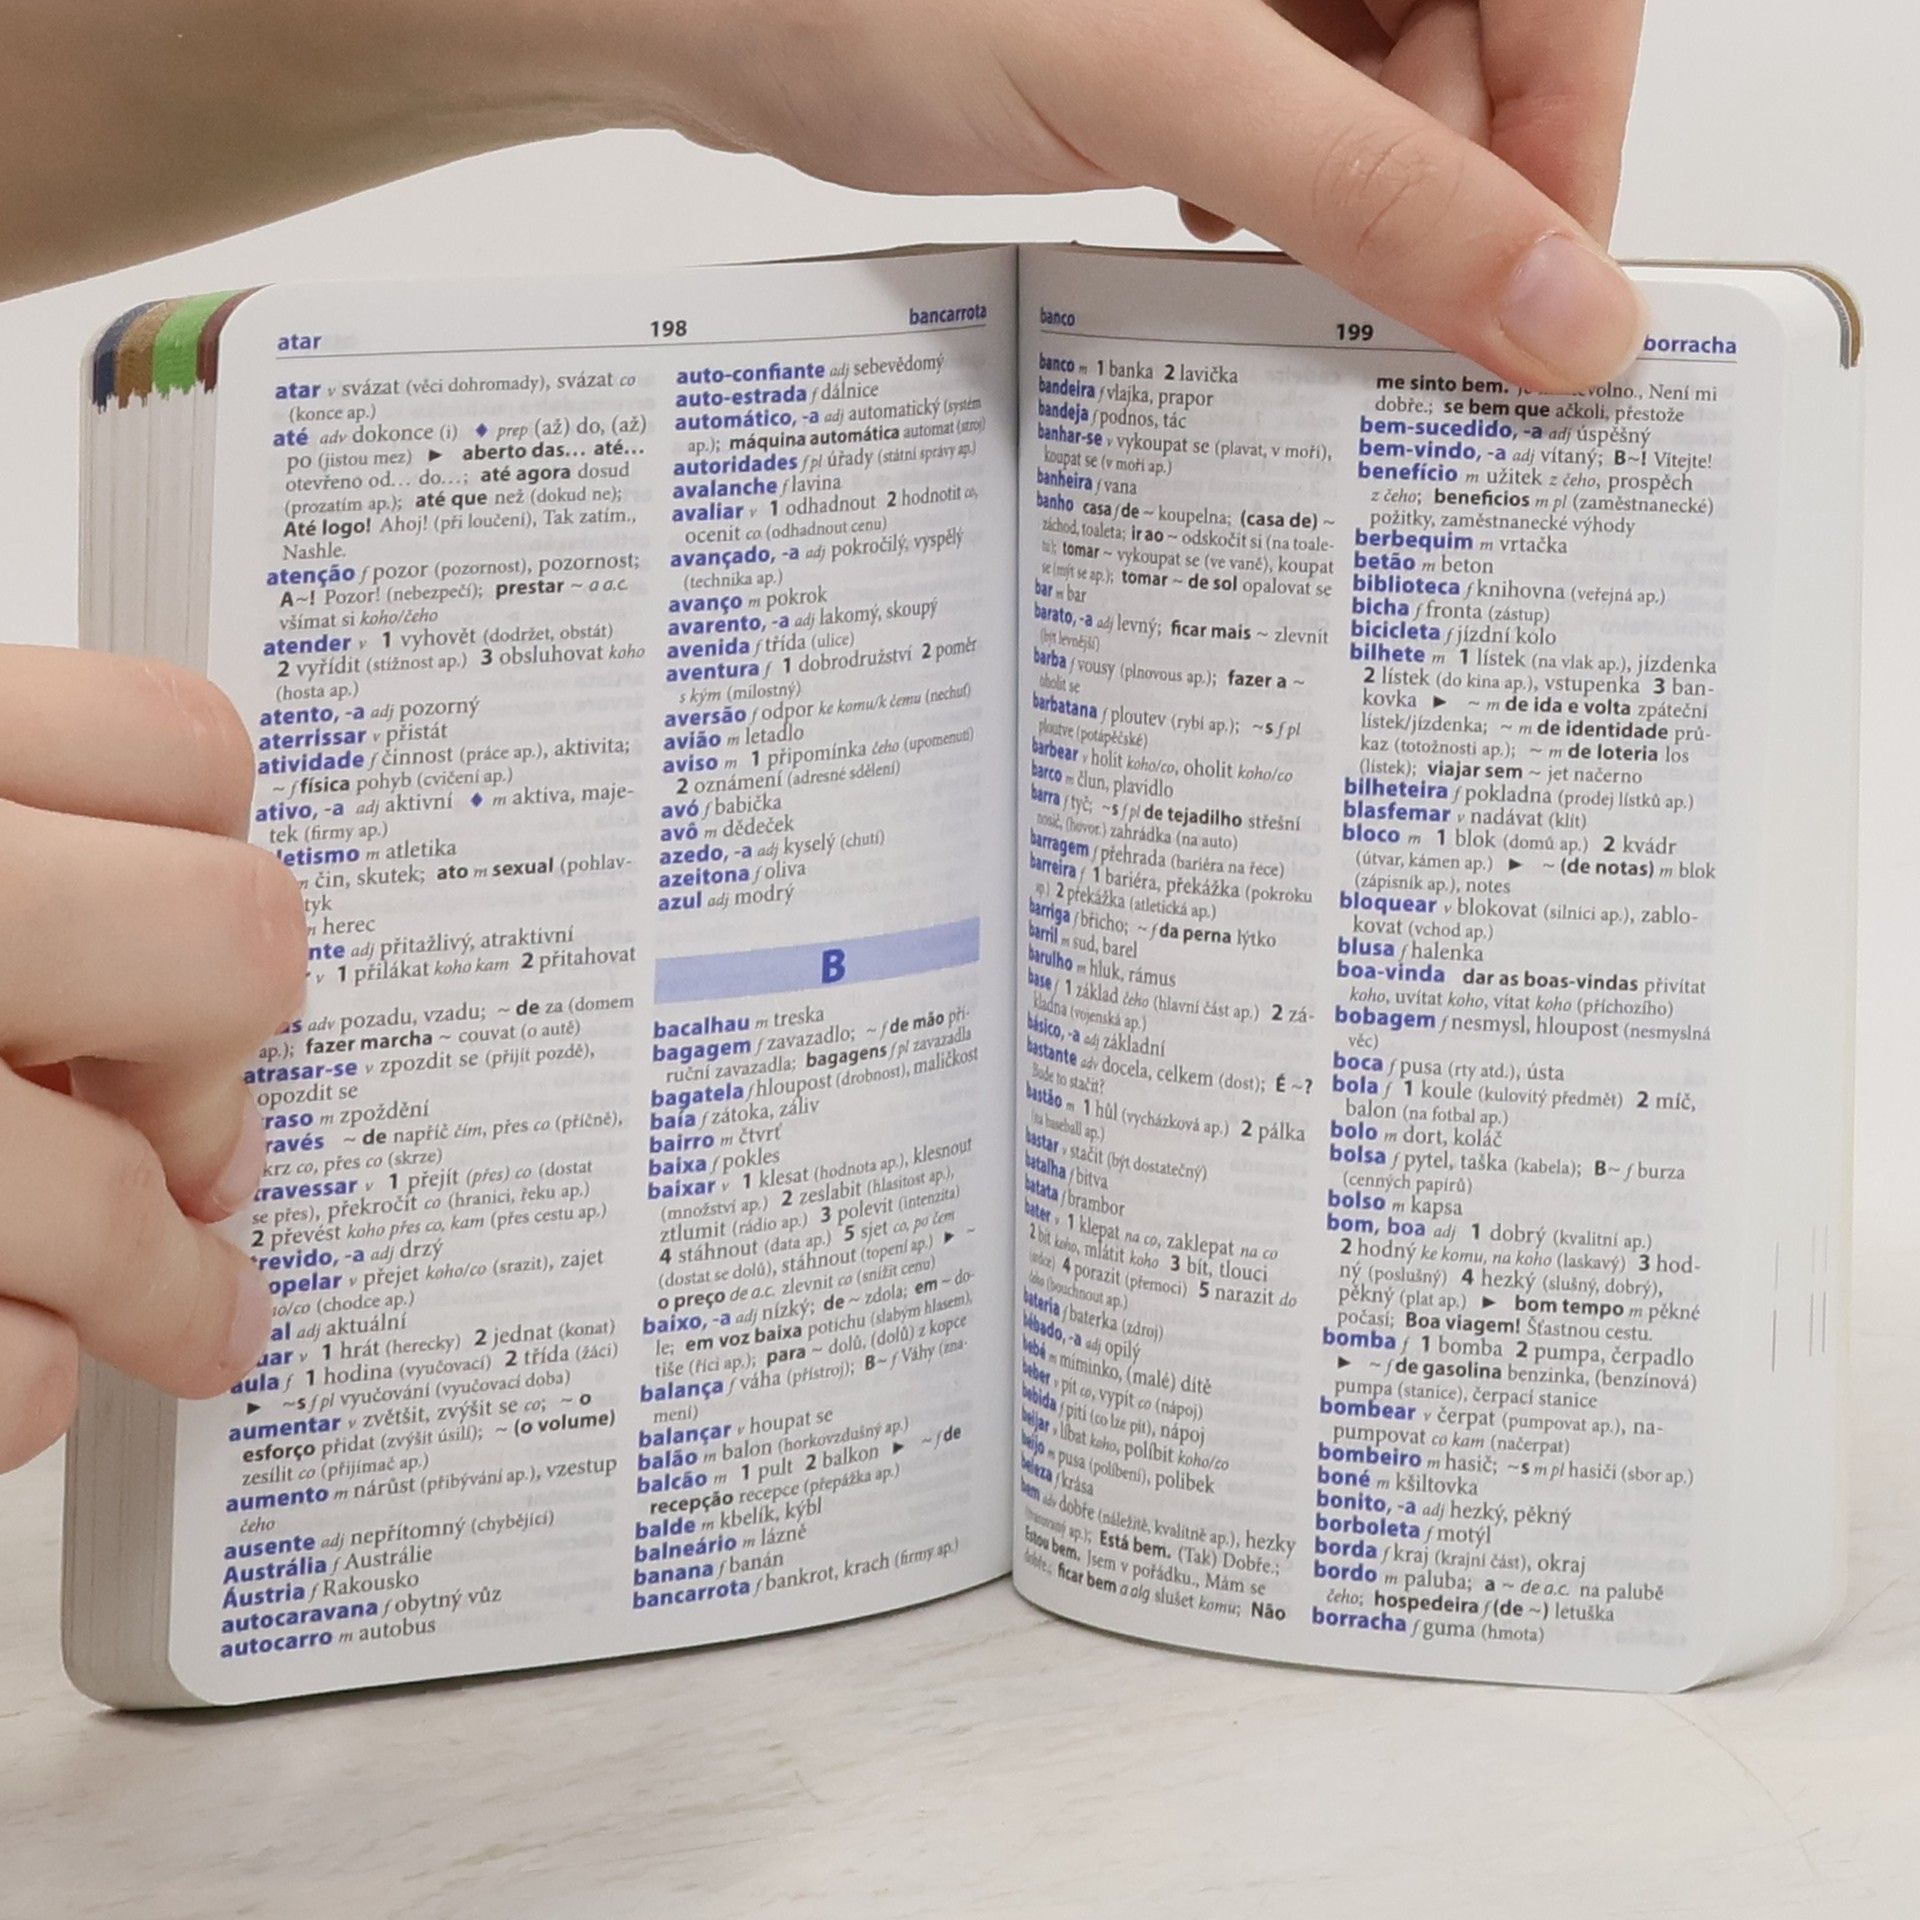 atar 198 bancarrota
atar v svázat (věci dohromady), svázat co
(konce ap.)
até adv dokonce (i) ◆ prep (až) do, (až)
po (jistou mez) ► aberto das… até…
otevřeno od… do…; até agora dosud
(prozatím ap.); até que než (dokud ne);
Até logo! Ahoj! (při loučení), Tak zatím.,
Nashle.
atenção f pozor (pozornost), pozornost;
A~! Pozor! (nebezpečí); prestar ~ a a.c.
všímat si koho/čeho
atender v 1 vyhovět (dodržet, obstát)
2 vyřídit (stížnost ap.) 3 obsluhovat koho
(hosta ap.)
atento, -a adj pozorný
aterrissar v přistát
atividade f činnost (práce ap.), aktivita;
~ f física pohyb (cvičení ap.)
ativo, -a adj aktivní ◆ m aktiva, maje-
tek (firmy ap.)
letismo m atletika
čin, skutek; ato m sexual (pohlav-
tyk
herec
nte adj přitažlivý, atraktivní
v 1 přilákat koho kam 2 přitahovat
as adv pozadu, vzadu; ~ de za (domem
ap.); fazer marcha ~ couvat (o autě)
atrasar-se v zpozdit se (přijít pozdě),
opozdit se
raso m zpoždění
ravés ~ de napříč čím, přes co (příčně),
krz co, přes co (skrze)
travessar v 1 přejít (přes) co (dostat
se přes), překročit co (hranici, řeku ap.)
2 převést koho přes co, kam (přes cestu ap.)
trevido, -a adj drzý
opelar v přejet koho/co (srazit), zajet
ho/co (chodce ap.)
al adj aktuální
uar v 1 hrát (herecky) 2 jednat (konat)
aula f 1 hodina (vyučovací) 2 třída (žáci)
► ~s f pl vyučování (vyučovací doba)
aumentar v zvětšit, zvýšit se co; ~ o
esforço přidat (zvýšit úsilí); ~ (o volume)
zesílit co (přijímač ap.)
aumento m nárůst (přibývání ap.), vzestup
čeho
ausente adj nepřítomný (chybějící)
Austrália f Austrálie
Áustria f Rakousko
autocaravana f obytný vůz
autocarro m autobus
auto-confiante adj sebevědomý
auto-estrada f dálnice
automático, -a adj automatický (systém
ap.); máquina automática automat (stroj)
autoridades f pl úřady (státní správy ap.)
avalanche f lavina
avaliar v 1 odhadnout 2 hodnotit co,
ocenit co (odhadnout cenu)
avançado, -a adj pokročilý, vyspělý
(technika ap.)
avanço m pokrok
avarento, -a adj lakomý, skoupý
avenida f třída (ulice)
aventura f 1 dobrodružství 2 poměr
s kým (milostný)
aversão f odpor ke komu/k čemu (nechuť)
avião m letadlo
aviso m 1 připomínka čeho (upomenutí)
2 oznámení (adresné sdělení)
avó f babička
avô m dědeček
azedo, -a adj kyselý (chutí)
azeitona f oliva
azul adj modrý
B
bacalhau m treska
bagagem f zavazadlo; ~ f de mão pří-
ruční zavazadla; bagagens f pl zavazadla
bagatela f hloupost (drobnost), maličkost
baía f zátoka, záliv
bairro m čtvrť
baixa f pokles
baixar v 1 klesat (hodnota ap.), klesnout
(množství ap.) 2 zeslabit (hlasitost ap.),
ztlumit (rádio ap.) 3 polevit (intenzita)
4 stáhnout (data ap.) 5 sjet co, po čem
(dostat se dolů), stáhnout (topení ap.) ► ~
o preço de a.c. zlevnit co (snížit cenu)
baixo, -a adj nízký; de ~ zdola; em ~ do-
le; em voz baixa potichu (slabým hlasem),
tiše (říci ap.); para ~ dolů, (dolů) z kopce
balança f váha (přístroj); B~ f Váhy (zna-
mení)
balançar v houpat se
balão m balon (horkovzdušný ap.)
balcão m 1 pult 2 balkon ► ~ f de
recepção recepce (přepážka ap.)
balde m kbelík, kýbl
balneário m lázně
banana f banán
bancarrota f bankrot, krach (firmy ap.)
banco 199 borracha
banco m 1 banka 2 lavička
bandeira f vlajka, prapor
bandeja f podnos, tác
banhar-se v vykoupat se (plavat, v moři),
koupat se (v moři ap.)
banheira f vana
banho casa f de ~ koupelna; (casa de) ~
záchod, toaleta; ir ao ~ odskočit si (na toale-
tu); tomar ~ vykoupat se (ve vaně), koupat
se (mýt se ap.); tomar ~ de sol opalovat se
bar m bar
barato, -a adj levný; ficar mais ~ zlevnit
(být levnější)
barba f vousy (plnovous ap.); fazer a ~
oholit se
barbatana f ploutev (rybí ap.); ~s f pl
ploutve (potápěčské)
barbear v holit koho/co, oholit koho/co
barco m člun, plavidlo
barra f tyč; ~s f pl de tejadilho střešní
nosič, (hovor.) zahrádka (na auto)
barragem f přehrada (bariéra na řece)
barreira f 1 bariéra, překážka (pokroku
ap.) 2 překážka (atletická ap.)
barriga f břicho; ~ f da perna lýtko
barril m sud, barel
barulho m hluk, rámus
base f 1 základ čeho (hlavní část ap.) 2 zá-
kladna (vojenská ap.)
básico, -a adj základní
bastante adv docela, celkem (dost); É ~?
Bude to stačit?
bastão m 1 hůl (vycházková ap.) 2 pálka
(na baseball ap.)
bastar v stačit (být dostatečný)
batalha f bitva
batata f brambor
bater v 1 klepat na co, zaklepat na co
2 bít koho, mlátit koho 3 bít, tlouci
(srdce) 4 porazit (přemoci) 5 narazit do
čeho (bouchnout ap.)
bateria f baterka (zdroj)
bêbado, -a adj opilý
bebé m miminko, (malé) dítě
beber v pít co, vypít co (nápoj)
bebida f pití (co lze pít), nápoj
beijar v líbat koho, políbit koho/co
beijo m pusa (políbení), polibek
beleza f krása
bem adv dobře (náležitě, kvalitně ap.), hezky
ap.); Está bem. (Tak) Dobře.;
Estou bem. Jsem v pořádku., Mám se
dobře.; ficar bem a alg slušet komu; Não
me sinto bem. volno., Není mi
dobře.; se bem que ačkoli, přestože
bem-sucedido, -a adj úspěšný
bem-vindo, -a adj vítaný; B~! Vítejte!
benefício m užitek z čeho, prospěch
z čeho; beneficios m pl (zaměstnanecké)
požitky, zaměstnanecké výhody
berbequim m vrtačka
betão m beton
biblioteca f knihovna (veřejná ap.)
bicha f fronta (zástup)
bicicleta f jízdní kolo
bilhete m 1 lístek (na vlak ap.), jízdenka
2 lístek (do kina ap.), vstupenka 3 ban-
kovka ► ~ m de ida e volta zpáteční
lístek/jízdenka; ~ m de identidade prů-
kaz (totožnosti ap.); ~ m de loteria los
(lístek); viajar sem ~ jet načerno
bilheteira f pokladna (prodej lístků ap.)
blasfemar v nadávat (klít)
bloco m 1 blok (domů ap.) 2 kvádr
(útvar, kámen ap.) ► ~ (de notas) m blok
(zápisník ap.), notes
bloquear v blokovat (silnici ap.), zablo-
kovat (vchod ap.)
blusa f halenka
boa-vinda dar as boas-vindas přivítat
koho, uvítat koho, vítat koho (příchozího)
bobagem f nesmysl, hloupost (nesmyslná
věc)
boca f pusa (rty atd.), ústa
bola f 1 koule (kulovitý předmět) 2 míč,
balon (na fotbal ap.)
bolo m dort, koláč
bolsa f pytel, taška (kabela); B~ f burza
(cenných papírů)
bolso m kapsa
bom, boa adj 1 dobrý (kvalitní ap.)
2 hodný ke komu, na koho (laskavý) 3 hod-
ný (poslušný) 4 hezký (slušný, dobrý),
pěkný (plat ap.) ► bom tempo m pěkné
počasí; Boa viagem! Šťastnou cestu.
bomba f 1 bomba 2 pumpa, čerpadlo
► ~ f de gasolina benzinka, (benzínová)
pumpa (stanice), čerpací stanice
bombear v čerpat (pumpovat ap.), na-
pumpovat co kam (načerpat)
bombeiro m hasič; ~s m pl hasiči (sbor ap.)
boné m kšiltovka
bonito, -a adj hezký, pěkný
borboleta f motýl
borda f kraj (krajní část), okraj
bordo m paluba; a ~ de a.c. na palubě
čeho; hospedeira f (de ~) letuška
borracha f guma (hmota)